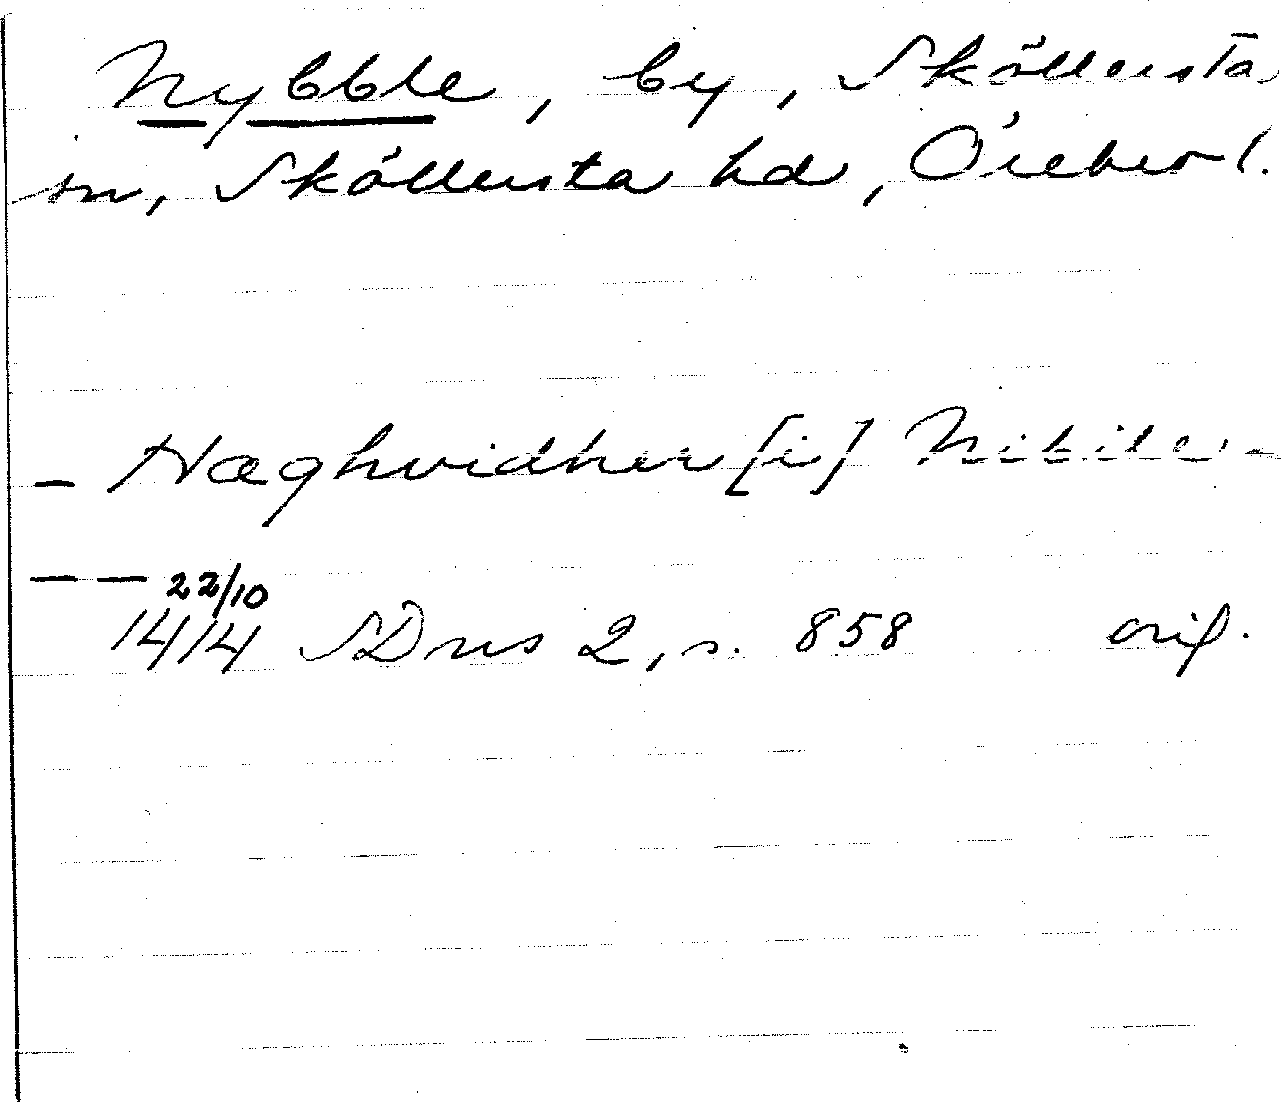 Nybble, by, Sköllersta
sn, Sköllersta hd, Örebro l.
- Hæghvidher [i] Nibile -
— — 22/10
1414 SDns 2, s. 858 orig.